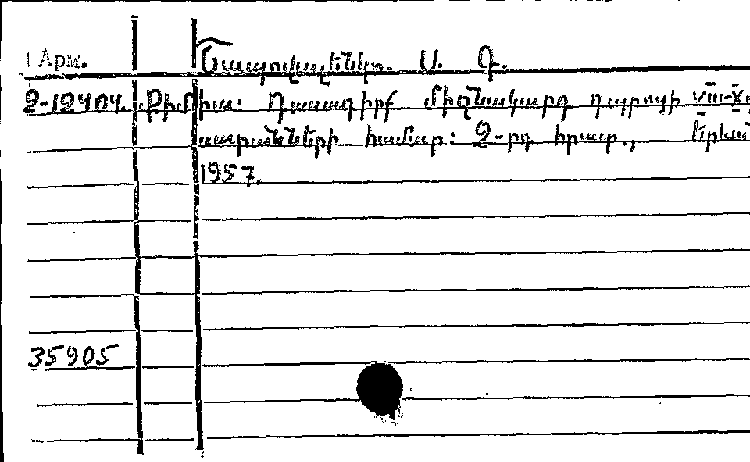 1 Арм.
Շապովալենկո. Ս. Գ.
2-12404. Քիմիա: Դասագիրք միջնակարգ դպրոցի VII-X
դասարանների համար: 2-րդ հրատ., Երևան
1957.
35905